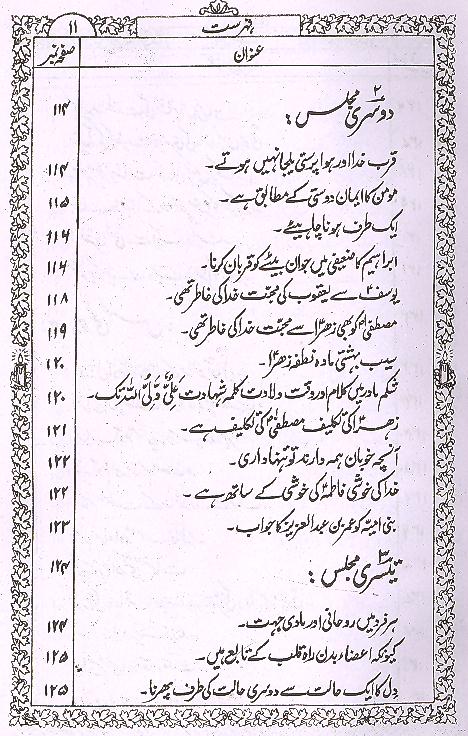 ۱۱ فہرست
عنوان صفحہ نمبر
دوسری۲ مجلس : ۱۱۴
قرب خدا اور ہوا پرستی یکجا نہیں ہوتے۔ ۱۱۴
مومن کا ایمان دوستی کے مطابق ہے۔ ۱۱۵
ایک طرف ہونا چاہیئے۔ ۱۱۶
ابراہیم کا ضعیفی میں جوان بیٹے کو قربان کرنا۔ ۱۱۶
یوسفؑ سے یعقوب کی محبّت خدا کی خاطر تھی۔ ۱۱۸
مصطفٰیؐ کو بھی زہراؑ سے محبّت خدا کی خاطر تھی۔ ۱۱۹
سیب بہشتی مادہ نطفۂ زہراؑ۔ ۱۲۰
شکم مادر میں کلام اور وقت ولادت کلمہ شہادت عَلِیٌّ وَلِیُّ اللّٰہ تک۔ ۱۲۰
زہراؑ کی تکلیف مصطفٰیؐ کی تکلیف ہے۔ ۱۲۱
آنچہ خوباں ہمہ دارند تو تنہا داری۔ ۱۲۲
خدا کی خوشی فاطمہؑ کی خوشی کے ساتھ ہے۔ ۱۲۲
بنی امیّہ کو عمر بن عبد العزیز کا جواب۔ ۱۲۳
تیسری۳ مجلس : ۱۲۴
ہر فرد میں روحانی اور مادی جہت۔ ۱۲۴
کیونکہ اعضاء بدن راہ قلب کے تابع ہیں۔ ۱۲۵
دِل کا ایک حالت سے دوسری حالت کی طرف پھرنا۔ ۱۲۵